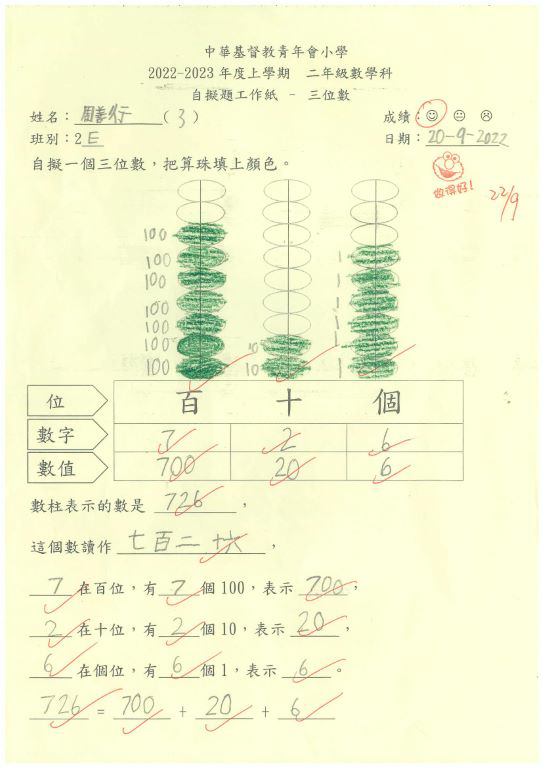 中華基督教青年會小學
2022-2023 年度上學期 二年級數學科
自擬題工作紙 - 三位數
姓名：周善行（3）
成績：
班別：2E
日期：20-9-2022
自擬一個三位數，把算珠填上顏色。
做得好！
22/9
100
100 1
100 1
100 1
100 1
100 10 1
100 10 1
位 百 十 個
數字 7 2 6
數值 700 20 6
數柱表示的數是 726，
這個數讀作 七百二十六，
7 在百位，有 7 個 100，表示 700，
2 在十位，有 2 個 10，表示 20，
6 在個位，有 6 個 1，表示 6。
726 = 700 + 20 + 6